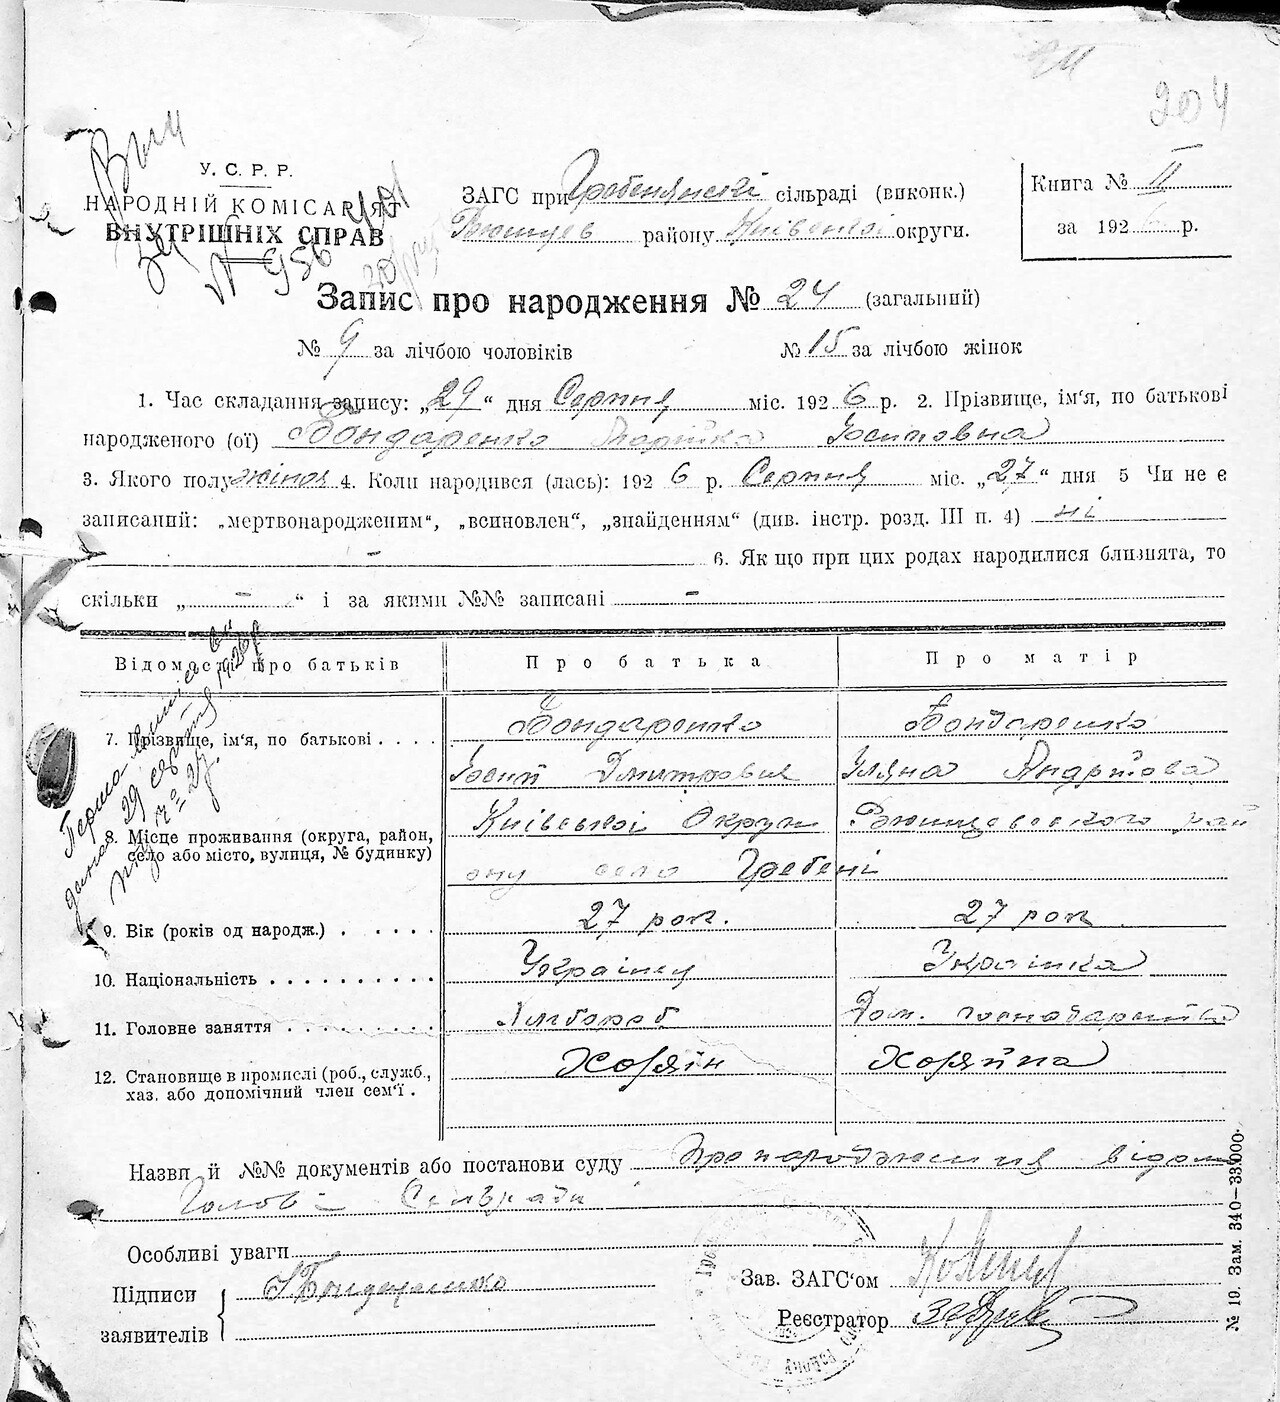 204
У. С. Р. Р.
НАРОДНІЙ КОМІСАРІЯТ
ВНУТРІШНІХ СПРАВ
ЗАГС при Гребенянській сільраді (виконк.)
району Київської округи.
Книга № II
за 1926 р.
Запис про народження № 24 (загальний)
№ 9 за лічбою чоловіків
№ 15 за лічбою жінок
1. Час складання запису: „29“ дня Серпня міс. 1926 р. 2. Прізвище, ім‘я, по батькові
народженого (ої) Бондаренко Марійка Йосиповна
3. Якого полу жіноч 4. Коли народився (лась): 1926 р. Серпня міс. „27“ дня 5 Чи не є
записаний: „мертвонародженим“, „всиновлен“, „знайденням“ (див. інстр. розд. III п. 4) ні
- 6. Як що при цих родах народилися близнята, то
скільки „ - “ і за якими №№ записані -
Відомості про батьків
Про батька
Про матір
7. Прізвище, ім‘я, по батькові . . . .
Бондаренко
Бондаренко
Йосип Дмитрович
Уляна Андрійова
8. Місце проживання (округа, район,
село або місто, вулиця, № будинку)
Київської Округи Ржищевського рай
ону село Гребені
9. Вік (років од народж.) . . . . .
27 рок.
27 рок
10. Національність . . . . . . . . . .
Українец
Українка
11. Головне заняття . . . . . . . . .
Хлібороб
Дом. господарство
12. Становище в промислі (роб., служб.,
хаз. або допомічний член сем‘ї .
Хозяін
Хозяйка
Назви й №№ документів або постанови суду Про народження відомо
Голові Сельради
Особливі уваги
Підписи
заявителів
Бондаренко
Зав. ЗАГС‘ом
Реєстратор
№ 19. Зам. 340—33.000.